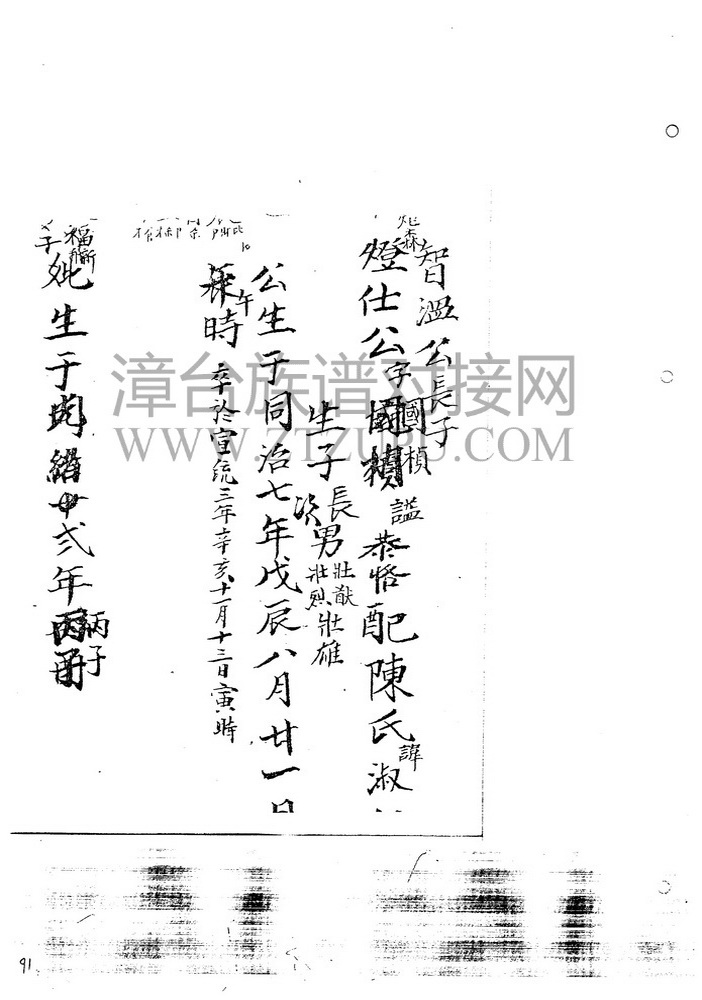 智溫公長子
燈仕公字國楨諡恭恪配陳氏諱淑
生子長男壯猷壯雄
次壯烈
公生于同治七年戊辰八月廿一日
午時卒於宣統三年辛亥十一月十三日寅時
妣生于光緒弍年丙子
漳台族谱对接网
WWW.ZTZUPU.COM
91